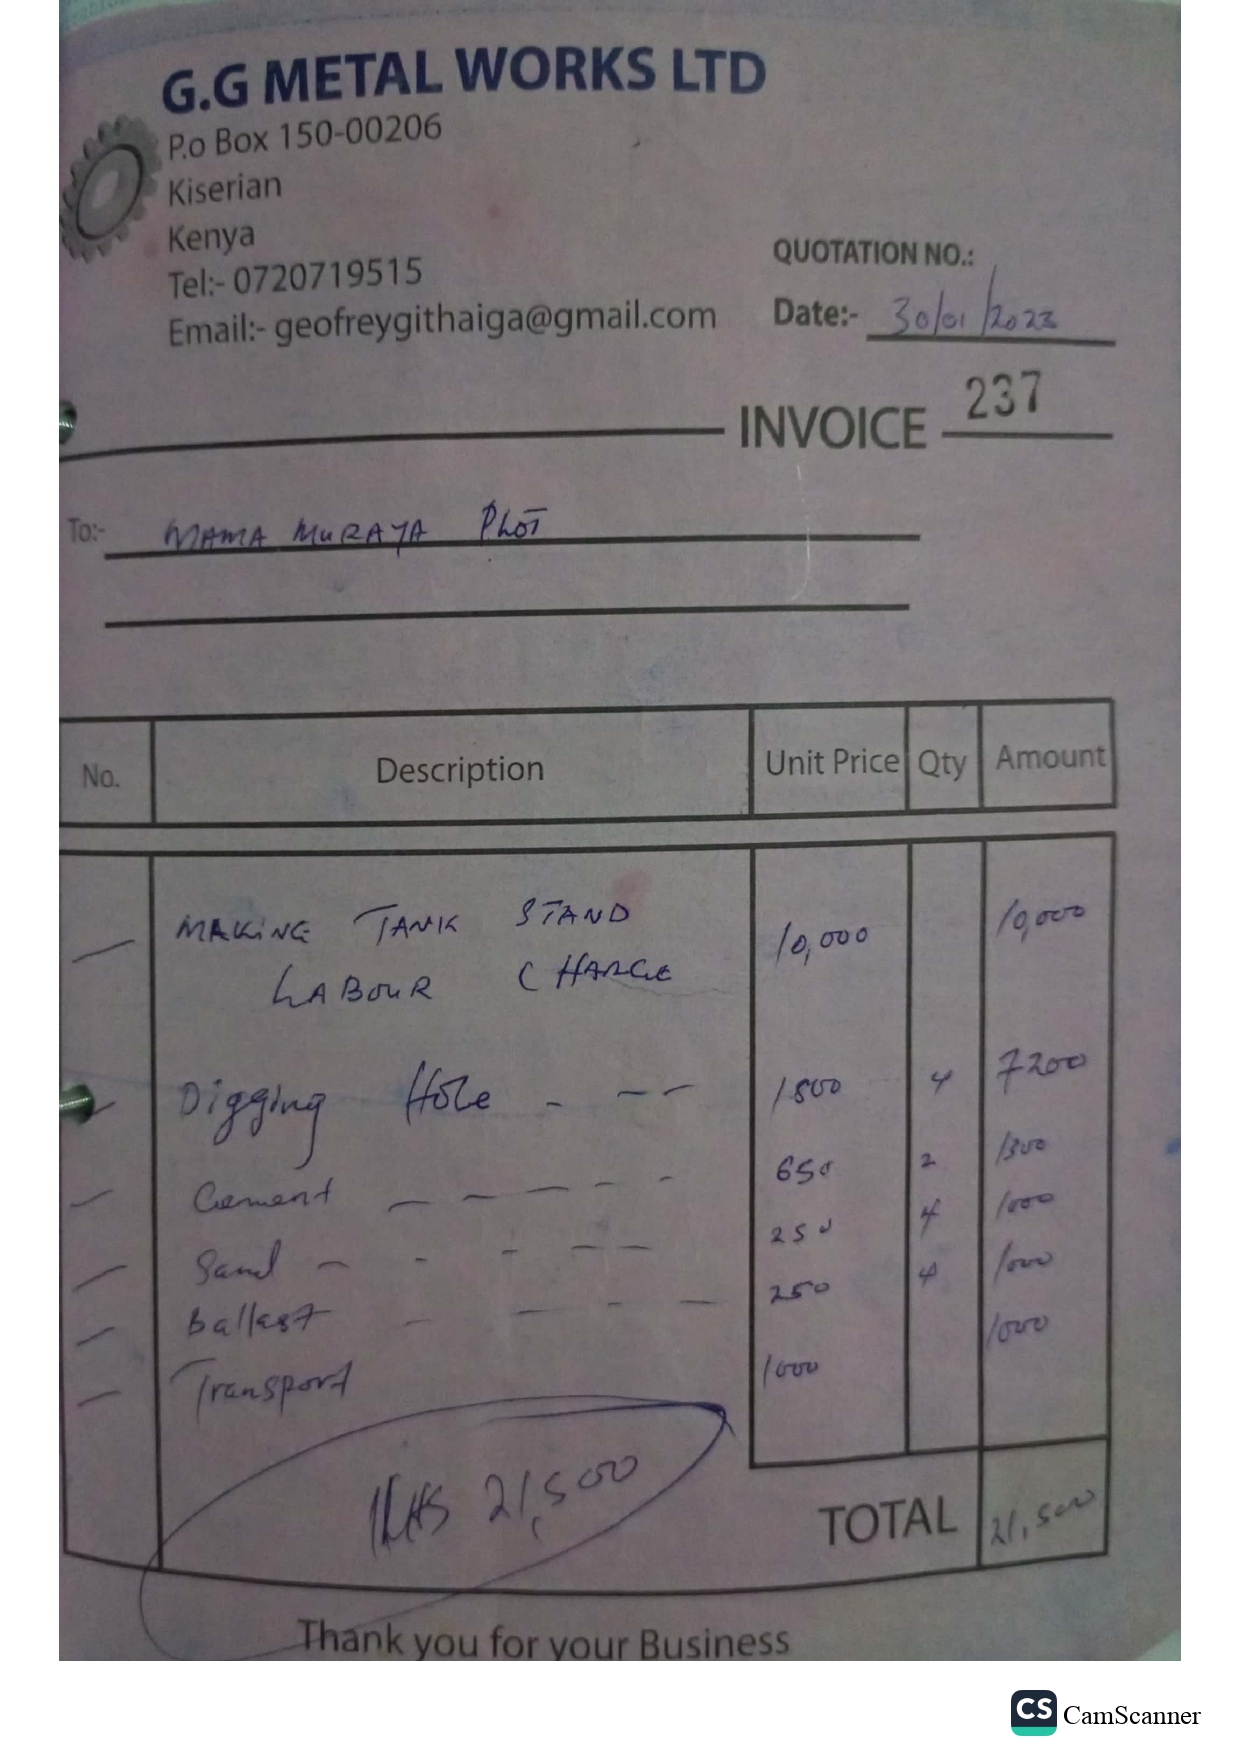 G.G METAL WORKS LTD
P.o Box 150-00206
Kiserian
Kenya
Tel:- 0720719515
Email:- geofreygithaiga@gmail.com
QUOTATION NO.:
Date:- 30/01/2023
INVOICE 237
To:- MAMA MURAYA PLOT
No. Description Unit Price Qty Amount
— MAKING TANK STAND 10,000 10,000
LABOUR CHARGE
— Digging Hole - -- 1800 4 7200
— Cement — — — - - 650 2 1300
— Sand — - - — — 250 4 1000
— Ballast — — - — 250 4 1000
— Transport 1000 1000
KHS 21,500
TOTAL 21,500
Thank you for your Business
CS CamScanner